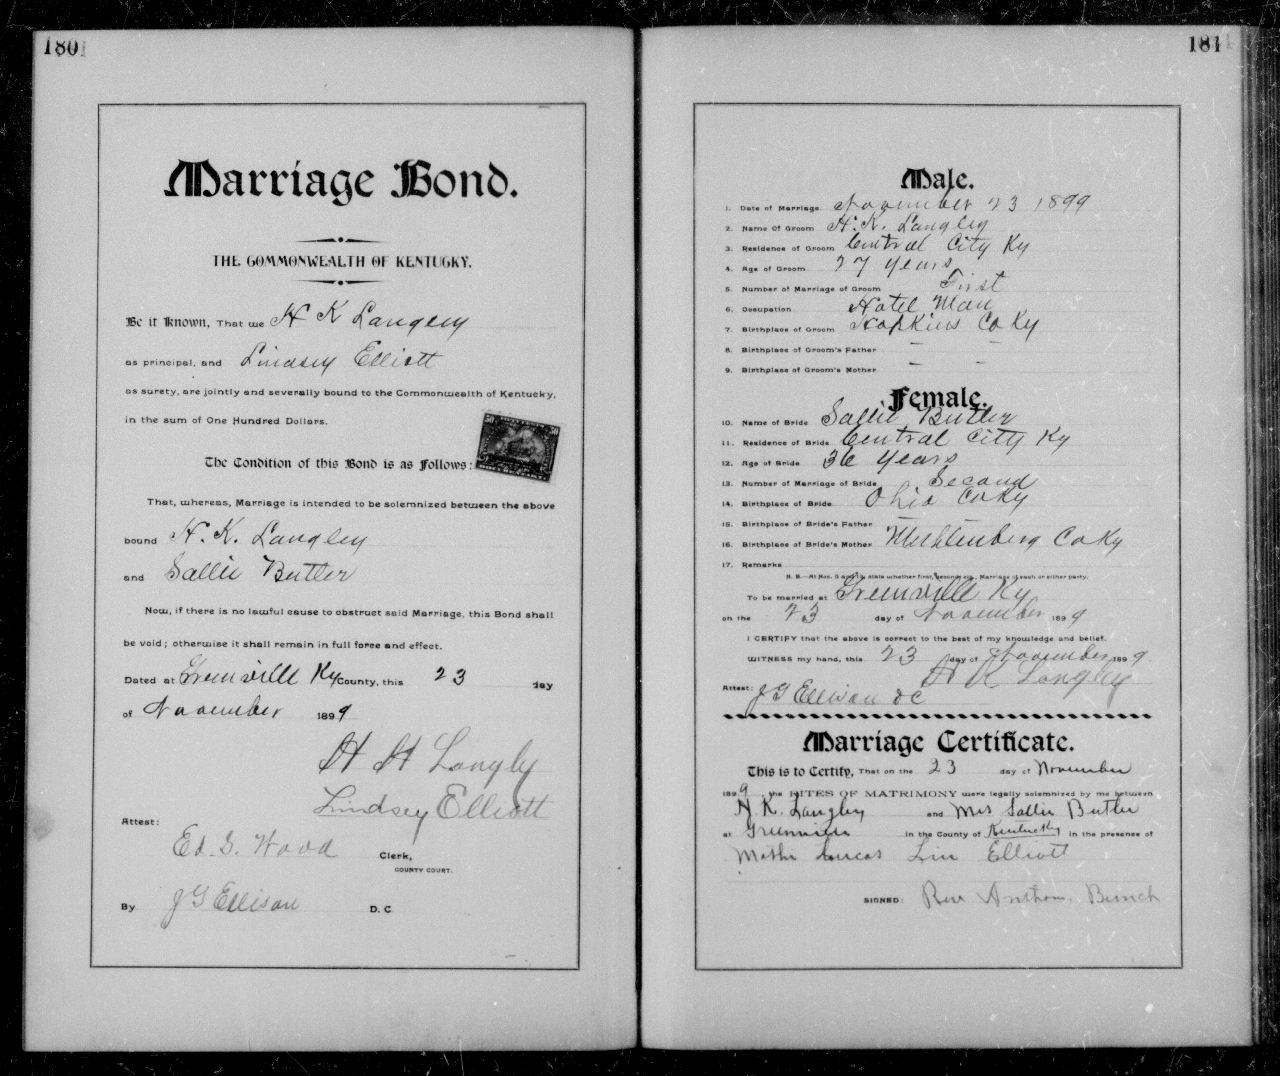 180
Marriage Bond.
THE COMMONWEALTH OF KENTUCKY.
Be it Known, That we H K Langley
as principal, and Lindsey Elliott
as surety, are jointly and severally bound to the Commonwealth of Kentucky,
in the sum of One Hundred Dollars.
50 50
The Condition of this Bond is as Follows:
That, whereas, Marriage is intended to be solemnized between the above
bound H. K. Langley
and Sallie Butler
Now, if there is no lawful cause to obstruct said Marriage, this Bond shall
be void; otherwise it shall remain in full force and effect.
Dated at Greenville Ky County, this 23 day
of November 1899
H H Langly
Lindsey Elliott
Attest:
Ed. S. Wood Clerk,
COUNTY COURT.
By J G Ellison D. C
181
Male.
1. Date of Marriage November 23 1899
2. Name Of Groom H. K. Langley
3. Residence of Groom Central City Ky
4. Age of Groom 27 years
5. Number of Marriage of Groom First
6. Occupation Hotel Man
7. Birthplace of Groom Hopkins Co Ky
8. Birthplace of Groom's Father — —
9. Birthplace of Groom's Mother — —
Female.
10. Name of Bride Sallie Butler
11. Residence of Bride Central City Ky
12. Age of Bride 36 years
13. Number of Marriage of Bride Second
14. Birthplace of Bride Ohio Co Ky
15. Birthplace of Bride's Father —
16. Birthplace of Bride's Mother Muhlenberg Co Ky
17. Remarks
N. B.—At Nos. 5 and 13, state whether first, second, etc., Marriage of each or either party.
To be married at Greenville Ky
on the 23 day of November 1899
I CERTIFY that the above is correct to the best of my knowledge and belief.
WITNESS my hand, this 23 day of November 1899
H K Langley
Attest: J G Ellison DC
Marriage Certificate.
This is to Certify, That on the 23 day of November
1899 the RITES OF MATRIMONY were legally solemnized by me between
H. K. Langley and Mrs Sallie Butler
at Greenville in the County of Kentucky in the presence of
Lucas Lin Elliott
SIGNED: Rev Bunch